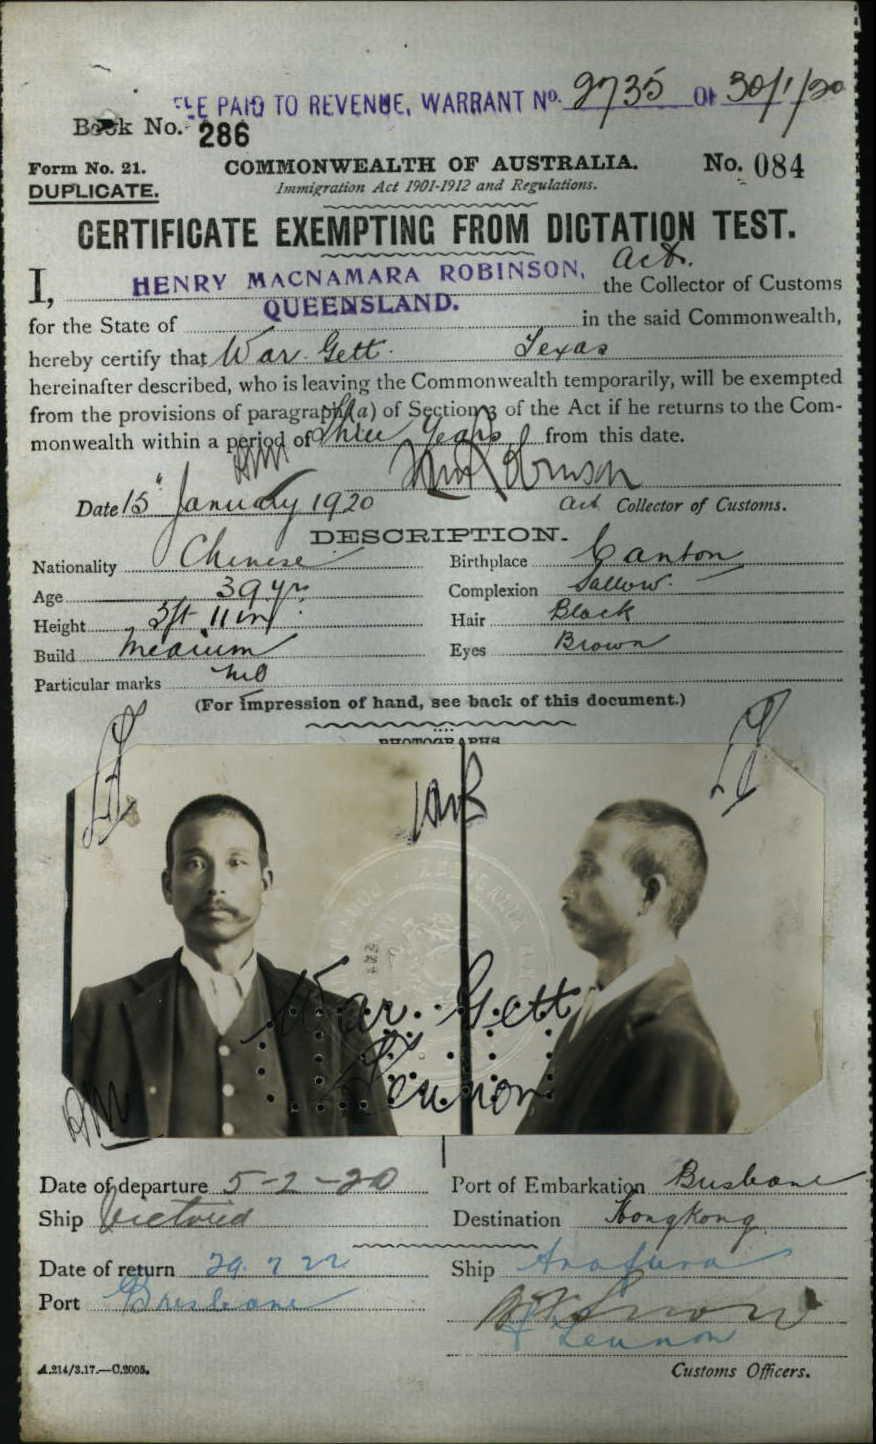 FEE PAID TO REVENUE, WARRANT No. 2735 OF 30/1/20
Book No. 286
Form No. 21. COMMONWEALTH OF AUSTRALIA. No. 084
DUPLICATE. Immigration Act 1901-1912 and Regulations.
CERTIFICATE EXEMPTING FROM DICTATION TEST.
I, HENRY MACNAMARA ROBINSON, Act. the Collector of Customs
for the State of QUEENSLAND. in the said Commonwealth,
hereby certify that War Gett Texas
hereinafter described, who is leaving the Commonwealth temporarily, will be exempted
from the provisions of paragraph (a) of Section 3 of the Act if he returns to the Com-
monwealth within a period of Three Years from this date.
HMR
HM Robinson
Date 15" January 1920 Act Collector of Customs.
DESCRIPTION.
Nationality Chinese Birthplace Canton
Age 39 yrs Complexion Sallow.
Height 5ft 11 in Hair Black
Build medium Eyes Brown
Particular marks nil
(For impression of hand, see back of this document.)
PHOTOGRAPHS
HMR
War Gett
Lennon
Date of departure 5-2-20 Port of Embarkation Brisbane
Ship Victoria Destination Hongkong
Date of return 29.7.22 Ship Arafura
Port Brisbane
Lennon
A.214/3.17.—C.2005. Customs Officers.